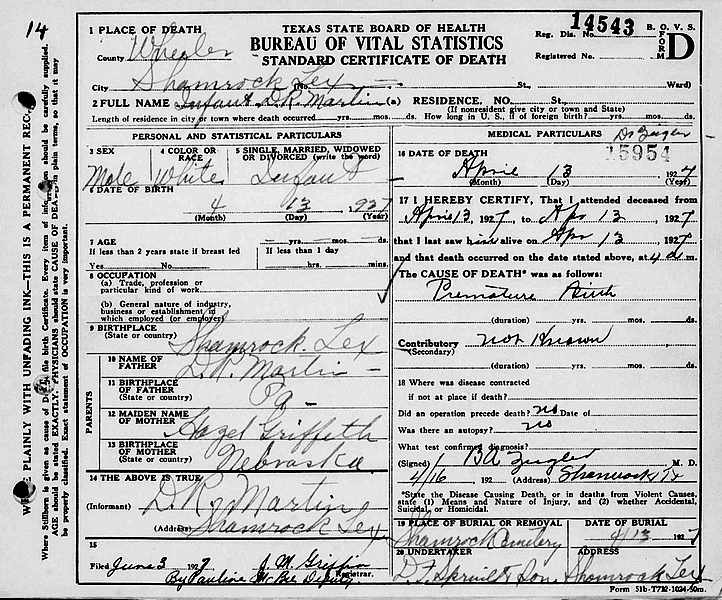 14
TEXAS STATE BOARD OF HEALTH
BUREAU OF VITAL STATISTICS
STANDARD CERTIFICATE OF DEATH
Reg. Dis. No. 14543 B. O. V. S.
Registered No.
FORM D
1 PLACE OF DEATH
County Wheeler
City Shamrock Tex (No. St., Ward)
2 FULL NAME Infant D. R. Martin (a) RESIDENCE. NO. St.,
(If nonresident give city or town and State)
Length of residence in city or town where death occurred yrs. mos. ds. How long in U. S., if of foreign birth? yrs. mos. ds.
PERSONAL AND STATISTICAL PARTICULARS
3 SEX
Male
4 COLOR OR RACE
White
5 SINGLE, MARRIED, WIDOWED OR DIVORCED (write the word)
Infant
6 DATE OF BIRTH
4 13 1927
(Month) (Day) (Year)
7 AGE yrs. mos. ds.
If less than 2 years state if breast fed If less than 1 day
Yes No hrs. mins.
8 OCCUPATION
(a) Trade, profession or
particular kind of work
(b) General nature of industry,
business or establishment in
which employed (or employer)
9 BIRTHPLACE
(State or country) Shamrock Tex
PARENTS
10 NAME OF FATHER D. R. Martin
11 BIRTHPLACE OF FATHER
(State or country) Pa
12 MAIDEN NAME OF MOTHER Hazel Griffeth
13 BIRTHPLACE OF MOTHER
(State or country) Nebraska
14 THE ABOVE IS TRUE
(Informant) D. R. Martin
(Address) Shamrock Tex
15
Filed June 3 1927 J. M. Griffin
Registrar.
By Pauline McBee Deputy
MEDICAL PARTICULARS Dr Zeigler
16 DATE OF DEATH 15954
April 13 1927
(Month) (Day) (Year)
17 I HEREBY CERTIFY, That I attended deceased from
Apr 13, 1927 to Apr 13 1927
that I last saw him alive on Apr 13 1927
and that death occurred on the date stated above, at 4 a m.
The CAUSE OF DEATH* was as follows:
Premature Birth
(duration) yrs. mos. ds.
Contributory Not Known
(Secondary)
(duration) yrs. mos. ds.
18 Where was disease contracted
if not at place of death?
Did an operation precede death? no Date of
Was there an autopsy? no
What test confirmed diagnosis?
(Signed) M. D.
4/16 192 (Address) Shamrock Tx
*State the Disease Causing Death, or in deaths from Violent Causes,
state (1) Means and Nature of Injury, and (2) whether Accidental,
Suicidal, or Homicidal.
19 PLACE OF BURIAL OR REMOVAL
Shamrock Cemetery
DATE OF BURIAL
4/13 1927
20 UNDERTAKER
& Son
ADDRESS
Shamrock Tex
Form 51b-T712-1024-50m.
WRITE PLAINLY WITH UNFADING INK—THIS IS A PERMANENT REC
Where Stillborn is given as cause of file birth Certificate. Every item of should be carefully supplied.
AGE should be stated EXACTLY. PHYSICIANS should state CAUSE OF DEATH in plain terms, so that it may
be properly classified. Exact statement of OCCUPATION is very important.